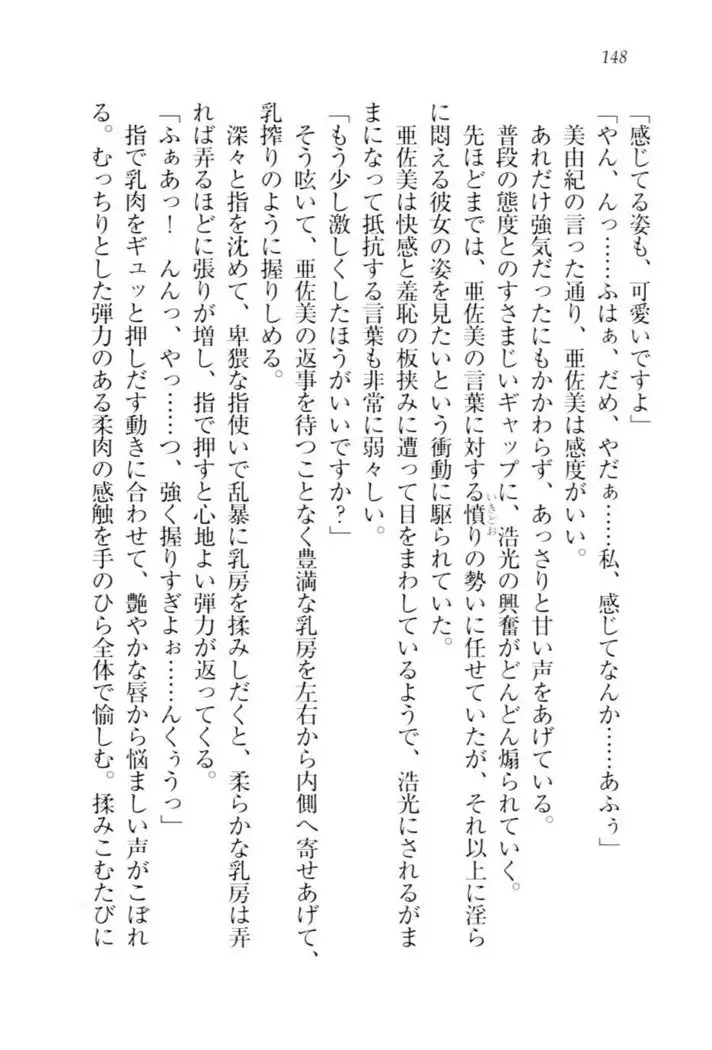 148
「感じてる姿も、可愛いですよ」
「やん、んっ……ふはぁ、だめ、やだぁ……私、感じてなんか……あふぅ」
美由紀の言った通り、亜佐美は感度がいい。
あれだけ強気だったにもかかわらず、あっさりと甘い声をあげている。
普段の態度とのすさまじいギャップに、浩光の興奮がどんどん煽られていく。
先ほどまでは、亜佐美の言葉に対する憤りの勢いに任せていたが、それ以上に淫ら
いきどお
に悶える彼女の姿を見たいという衝動に駆られていた。
亜佐美は快感と羞恥の板挟みに遭って目をまわしているようで、浩光にされるがま
まになって抵抗する言葉も非常に弱々しい。
「もう少し激しくしたほうがいいですか？」
そう呟いて、亜佐美の返事を待つことなく豊満な乳房を左右から内側へ寄せあげて、
乳搾りのように握りしめる。
深々と指を沈めて、卑猥な指使いで乱暴に乳房を揉みしだくと、柔らかな乳房は弄
れば弄るほどに張りが増し、指で押すと心地よい弾力が返ってくる。
「ふぁあっ！　んんっ、やっ……つ、強く握りすぎよぉ……んくぅうっ」
指で乳肉をギュッと押しだす動きに合わせて、艶やかな唇から悩ましい声がこぼれ
る。むっちりとした弾力のある柔肉の感触を手のひら全体で愉しむ。揉みこむたびに